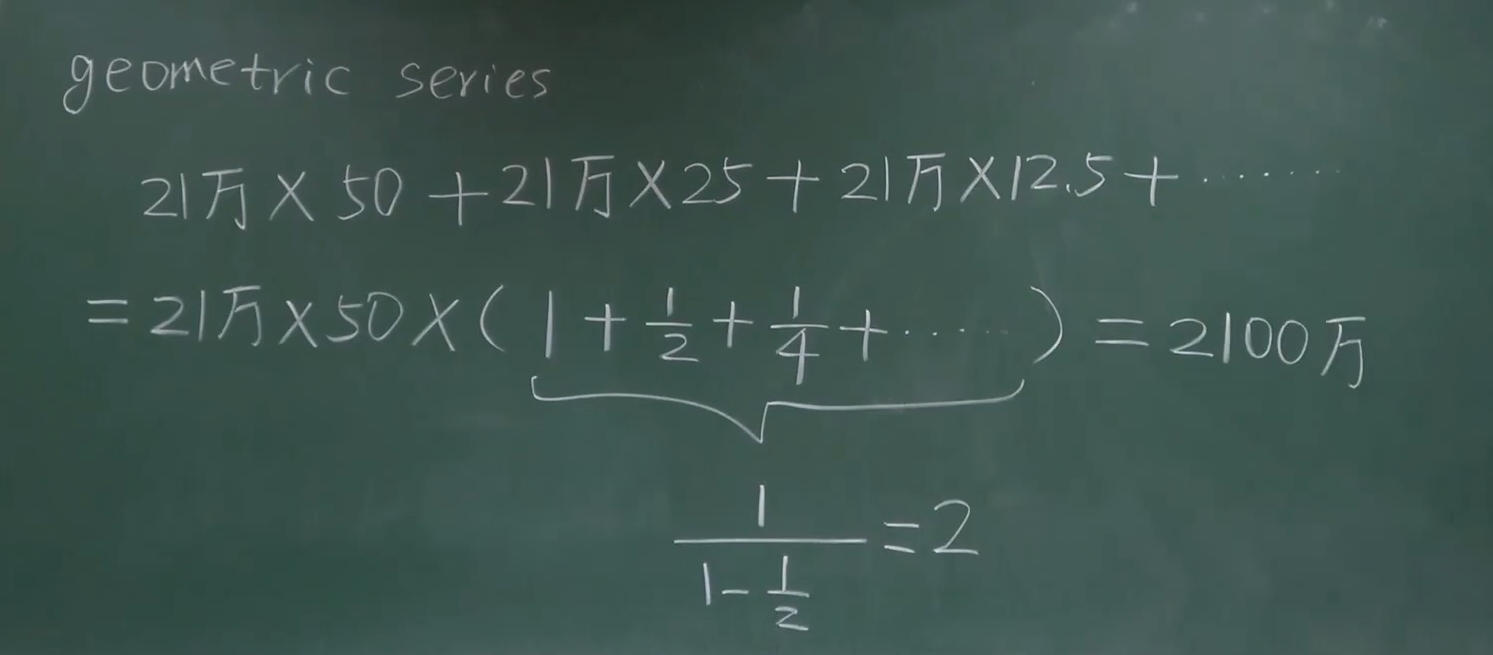 geometric series
21万×50+21万×25+21万×12.5+.......
=21万×50×(1+1/2+1/4+......)=2100万
1/(1-1/2)=2